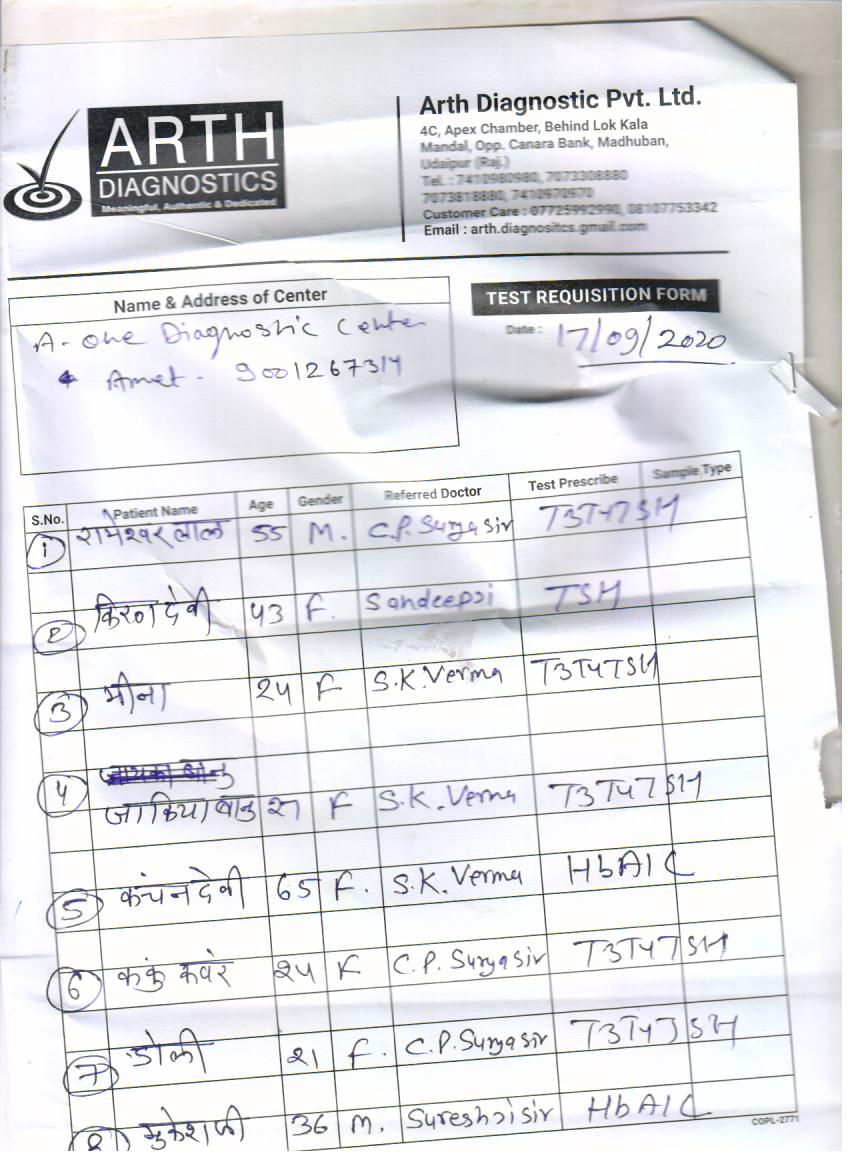 ARTH
DIAGNOSTICS
Meaningful, Authentic & Dedicated
Arth Diagnostic Pvt. Ltd.
4C, Apex Chamber, Behind Lok Kala
Mandal, Opp. Canara Bank, Madhuban,
Udaipur (Raj.)
Tel. : 7410980980, 7073308880
7073818880, 7410970970
Customer Care : 07725992990, 08107753342
Email : arth.diagnositcs.gmail.com
Name & Address of Center
A-one Diagnostic Center
Amet. 9001267314
TEST REQUISITION FORM
Date : 17/09/2020
S.No. Patient Name Age Gender Referred Doctor Test Prescribe Sample Type
1 रामेश्वर लाल 55 M. C.P. Surya sir T3T4TSH
2 किरण देवी 43 F. Sandeepji TSH
3 मीना 24 F S.K. Verma T3T4TSH
4 जाकिया बानु 27 F S.K. Verma T3T4TSH
5 कंचन देवी 65 F. S.K. Verma HbA1C
6 कंकु कवंर 24 F C.P. Surya sir T3T4TSH
7 डोली 21 F. C.P. Surya sir T3T4TSH
8 मुकेश जी 36 M. Sureshji sir HbA1C
COPL-2771